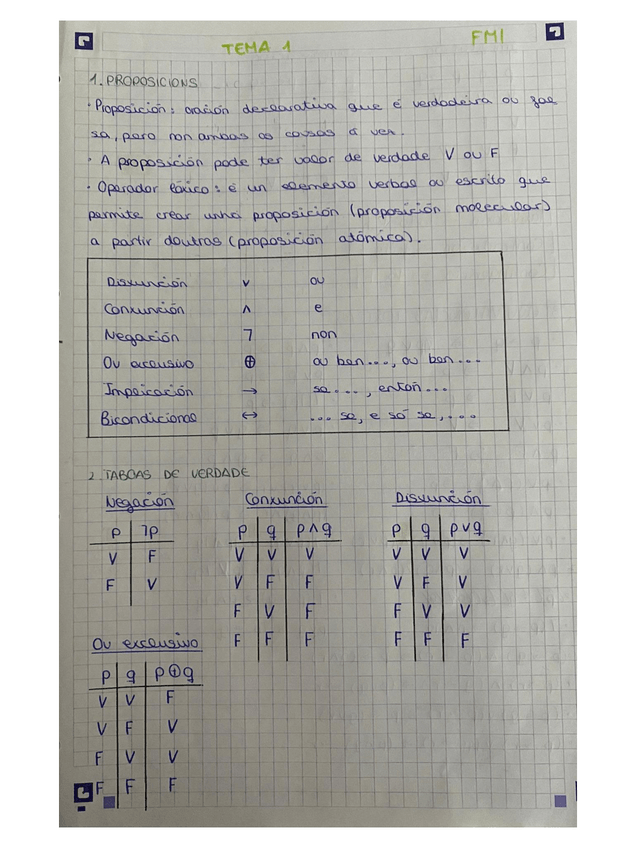 TEMA 1
FMI
1. PROPOSICIONS
· Proposición: oración declarativa que é verdadeira ou fal
sa, pero non ambas as cousas á vez.
· A proposición pode ter valor de verdade V ou F
· Operador lóxico: é un elemento verbal ou escrito que
permite crear unha proposición (proposición molecular)
a partir doutras (proposición atómica).
Disxunción ∨ ou
Conxunción ∧ e
Negación ┐ non
Ou exclusivo ⊕ ou ben..., ou ben...
Implicación → se..., entón...
Bicondicional ↔ ... se, e só se, ...
2. TABOAS DE VERDADE
Negación Conxunción Disxunción
p ┐p p q p∧q p q p∨q
V F V V V V V V
F V V F F V F V
F V F F V V
F F F F F F
Ou exclusivo
p q p⊕q
V V F
V F V
F V V
F F F